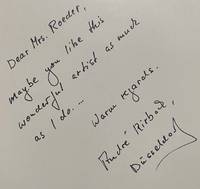 Dear Mrs. Roeder,
maybe you like this
wonderful artist as much
as I do....
Warm regards.
André
Düsseldorf